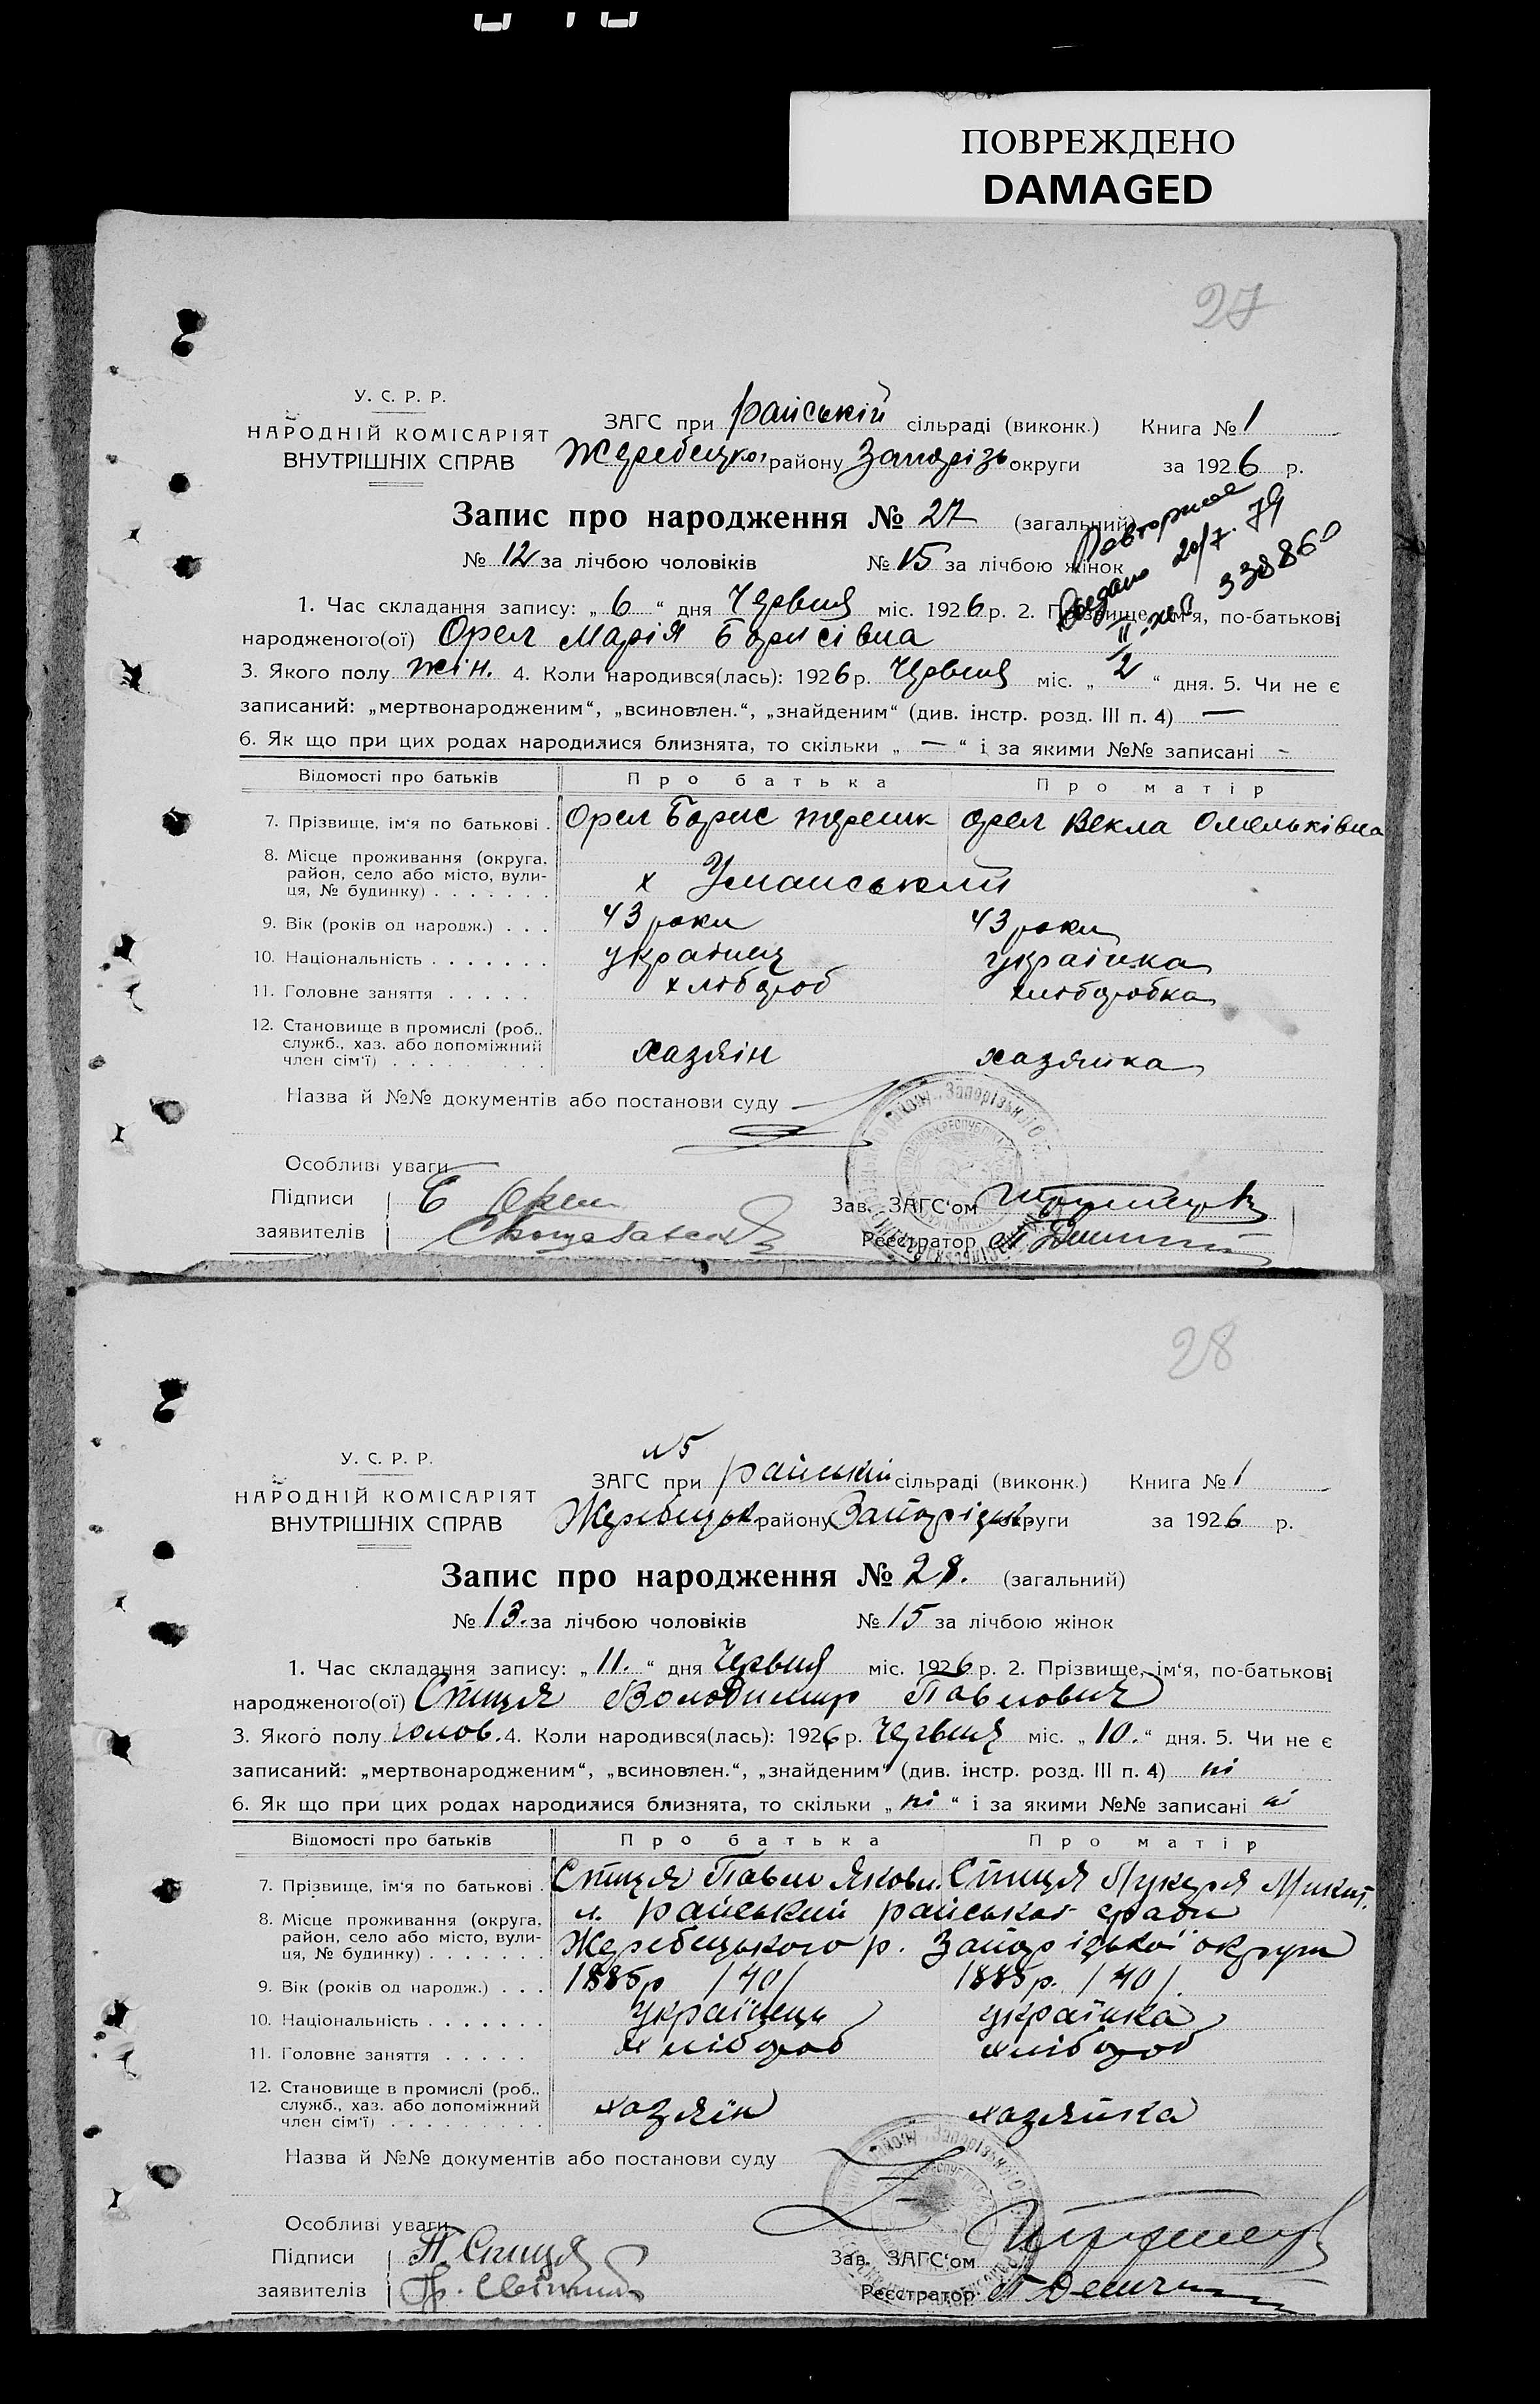 ПОВРЕЖДЕНО
DAMAGED
27
У. С. Р. Р.
НАРОДНІЙ КОМІСАРІЯТ
ВНУТРІШНІХ СПРАВ
ЗАГС при райській сільраді (виконк.) Книга № 1
Жеребецько, району Запорізь округи за 1926 р.
Запис про народження № 27 (загальний)
№ 12 за лічбою чоловіків № 15 за лічбою жінок
Повторное
выдано 20/7. 79
338860
1. Час складання запису: „ 6 “ дня Червня міс. 1926 р. 2. Прізвище, ім'я, по-батькові
народженого(ої) Орел Марія Борисівна
3. Якого полу жін. 4. Коли народився(лась): 1926 р. Червня міс. „ 2 “ дня. 5. Чи не є
записаний: „мертвонародженим“, „всиновлен.“, „знайденим“ (див. інстр. розд. III п. 4) —
6. Як що при цих родах народилися близнята, то скільки „ — “ і за якими №№ записані -
Відомості про батьків Про батька Про матір
7. Прізвище, ім'я по батькові . Орел Борис терешк Орел Векла Омельківна
8. Місце проживання (округа,
район, село або місто, вули-
ця, № будинку) . . . . . . . х Уманський
9. Вік (років од народж.) . . . 43 роки 43 роки
10. Національність . . . . . . . українец українка
11. Головне заняття . . . . . хлібороб хліборобка
12. Становище в промислі (роб.,
служб., хаз. або допоміжний
член сім'ї) . . . . . . . . . хазяїн хазяйка
Назва й №№ документів або постанови суду
Особливі уваги
Підписи Б Орел Зав. ЗАГС'ом
заявителів Реєстратор
28
№5
У. С. Р. Р.
НАРОДНІЙ КОМІСАРІЯТ
ВНУТРІШНІХ СПРАВ
ЗАГС при райській сільраді (виконк.) Книга № 1
Жеребецьк. району Запорізьк. округи за 1926 р.
Запис про народження № 28. (загальний)
№ 13. за лічбою чоловіків № 15 за лічбою жінок
1. Час складання запису: „ 11. “ дня Червня міс. 1926 р. 2. Прізвище, ім'я, по-батькові
народженого(ої) Спиця Володимир Павлович
3. Якого полу чолов. 4. Коли народився(лась): 1926 р. Червня міс. „ 10. “ дня. 5. Чи не є
записаний: „мертвонародженим“, „всиновлен.“, „знайденим“ (див. інстр. розд. III п. 4) ні
6. Як що при цих родах народилися близнята, то скільки „ ні “ і за якими №№ записані ні
Відомості про батьків Про батька Про матір
7. Прізвище, ім'я по батькові . Спиця Павло Якови. Спиця Лукеря Микит.
8. Місце проживання (округа,
район, село або місто, вули-
ця, № будинку) . . . . . . . райський райської сради
Жеребецького р. Запорізької округи
9. Вік (років од народж.) . . . 1885 р /40/ 1885 р. /40/.
10. Національність . . . . . . . українець українка
11. Головне заняття . . . . . хлібороб хлібороб
12. Становище в промислі (роб.,
служб., хаз. або допоміжний
член сім'ї) . . . . . . . . . хазяїн хазяйка
Назва й №№ документів або постанови суду
Особливі уваги
Підписи П Спиця Зав. ЗАГС'ом
заявителів Реєстратор